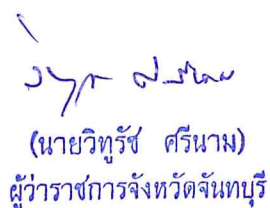 (นายวิทูรัช ศรีนาม)
ผู้ว่าราชการจังหวัดจันทบุรี